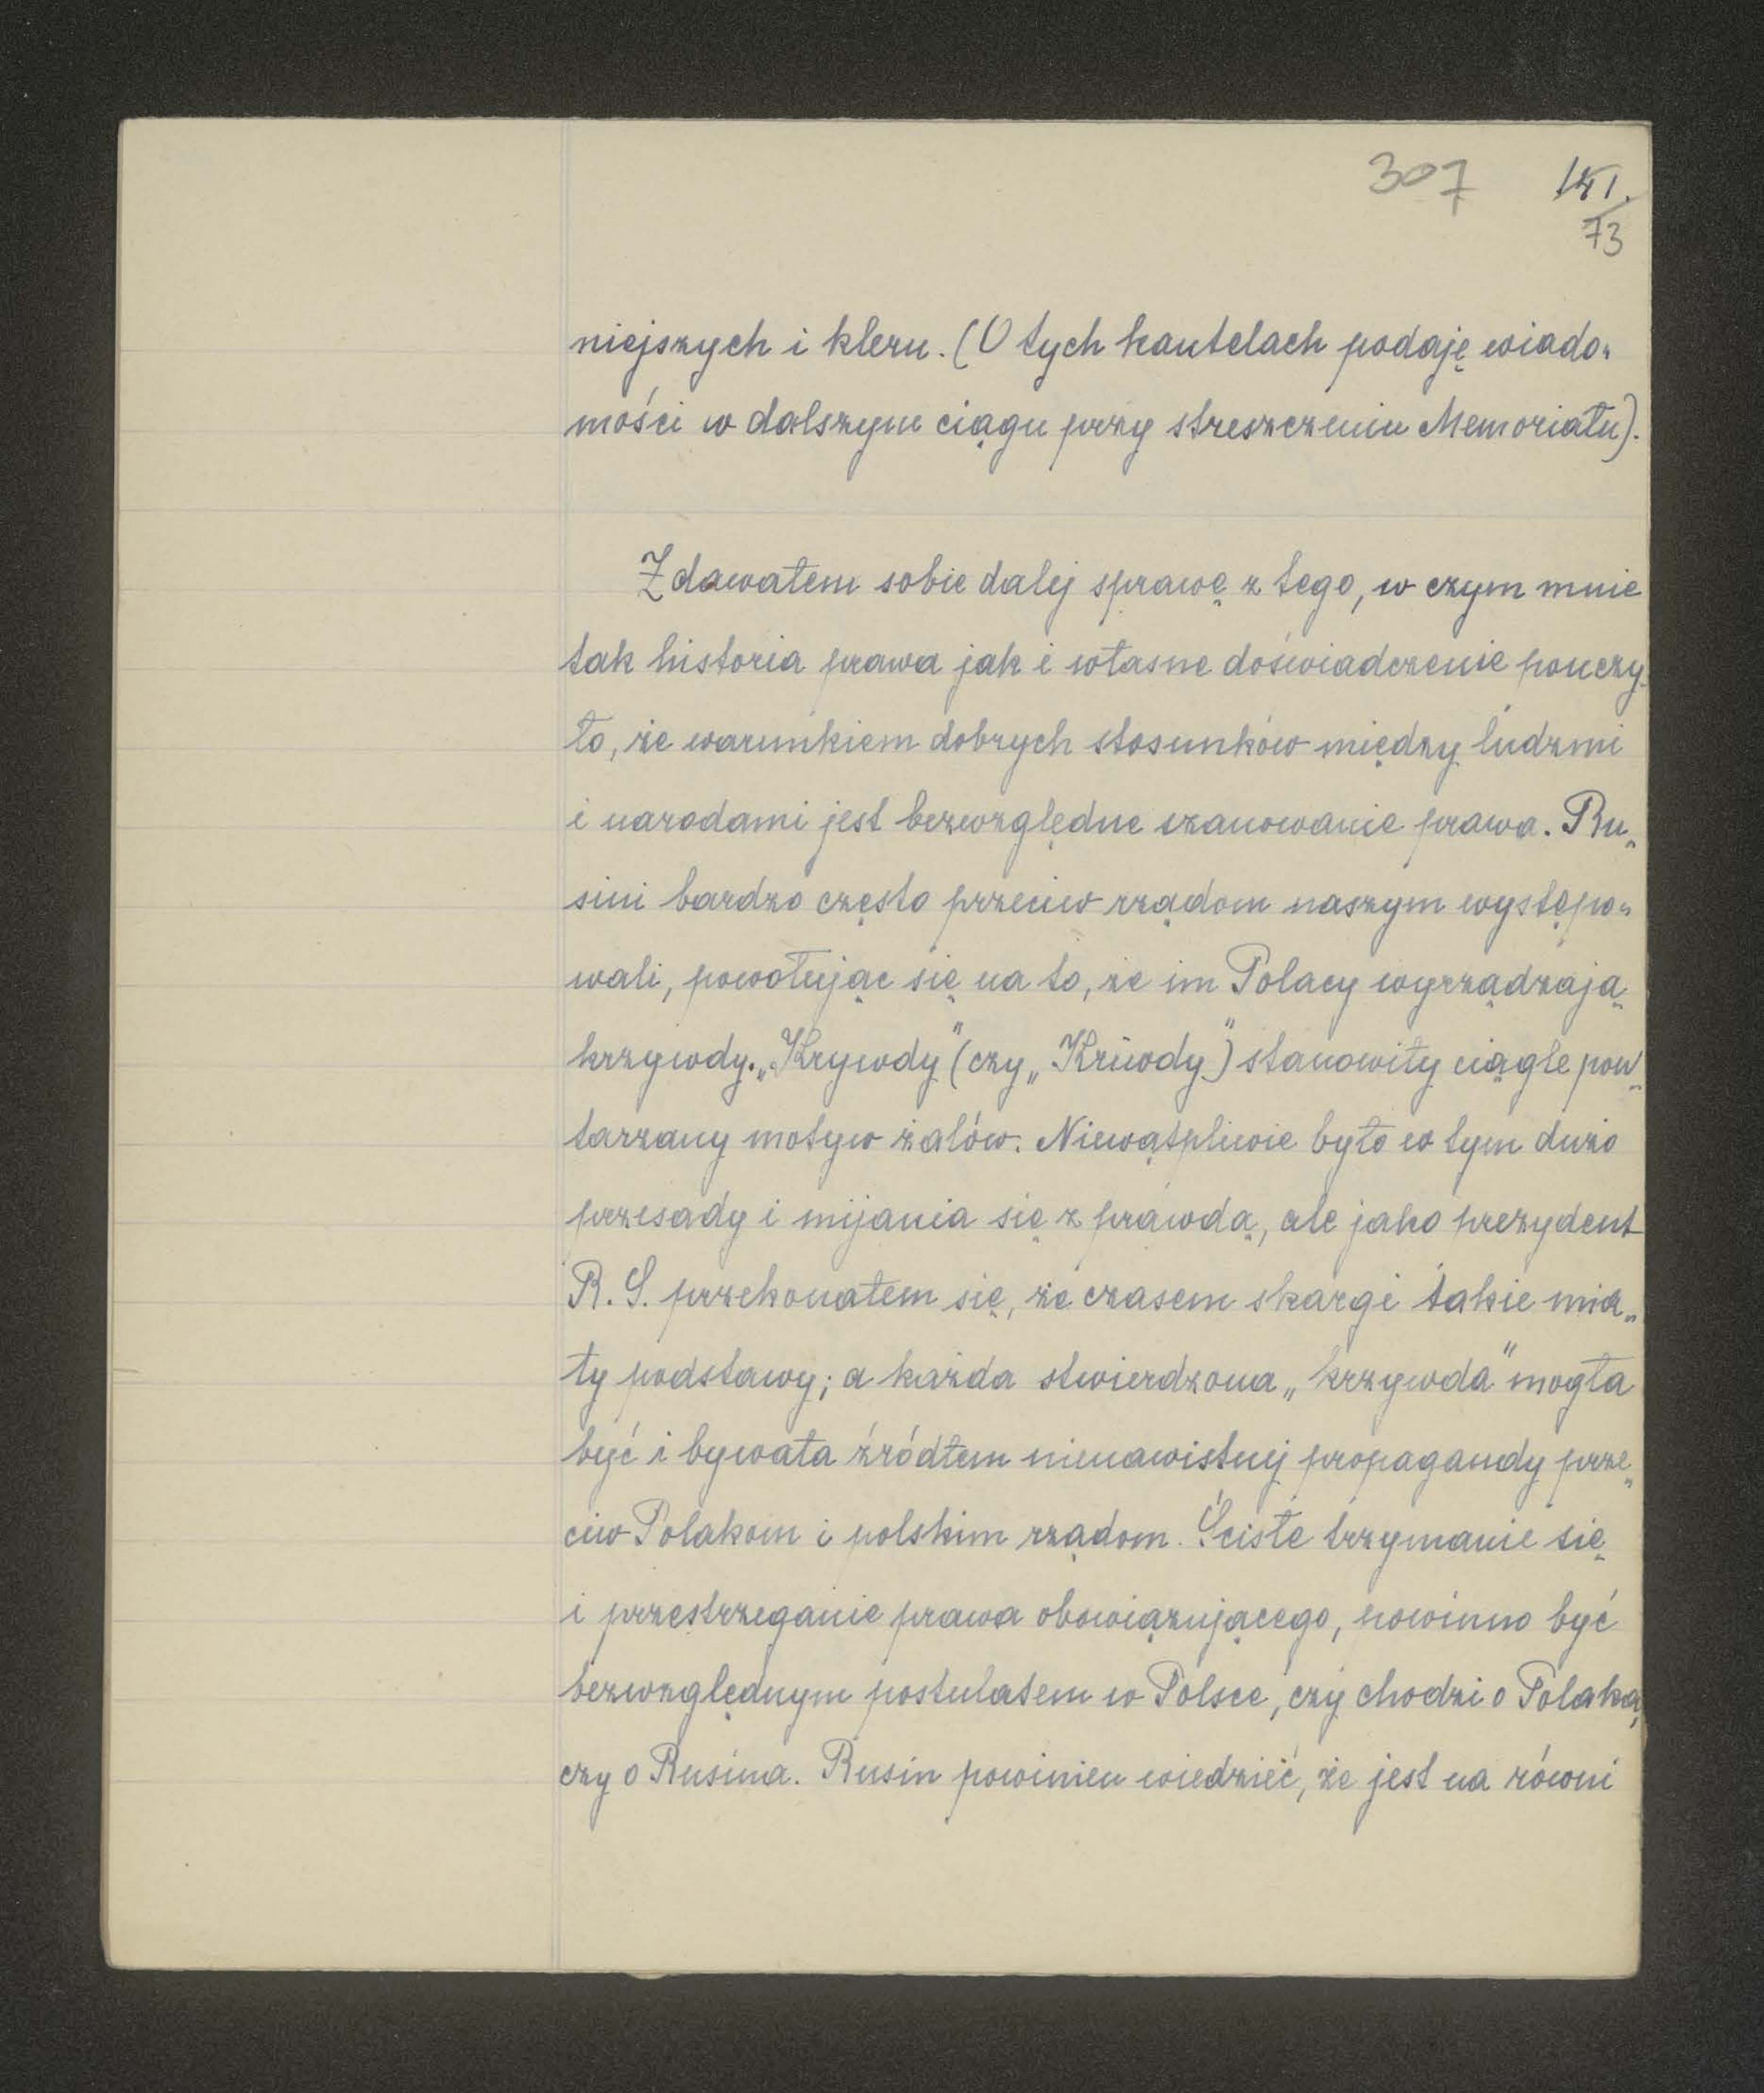 307 141.
73
niejszych i kleru. (O tych kautelach podaję wiado„
mości w dalszym ciągu przy streszczeniu Memoriału).
Zdawałem sobie dalej sprawę z tego, w czym mnie
tak historia prawa jak i własne doświadczenie pouczy„
ło, że warunkiem dobrych stosunków między ludźmi
i narodami jest bezwzględne szanowanie prawa. Ru„
sini bardzo często przeciw rządom naszym występo„
wali, powołując się na to, że im Polacy wyrządzają
krzywdy. „Krywdy" (czy „Kriwdy") stanowiły ciągle pow„
tarzany motyw żalów. Niewątpliwie było w tym dużo
przesady i mijania się z prawdą, ale jako prezydent
R. S. przekonałem się, że czasem skargi takie mia„
ły podstawy; a każda stwierdzona „krzywda" mogła
być i bywała źródłem nienawistnej propagandy prze„
ciw Polakom i polskim rządom. Ścisłe trzymanie się
i przestrzeganie prawa obowiązującego, powinno być
bezwzględnym postulatem w Polsce, czy chodzi o Polaka,
czy o Rusina. Rusin powinien wiedzieć, że jest na równi